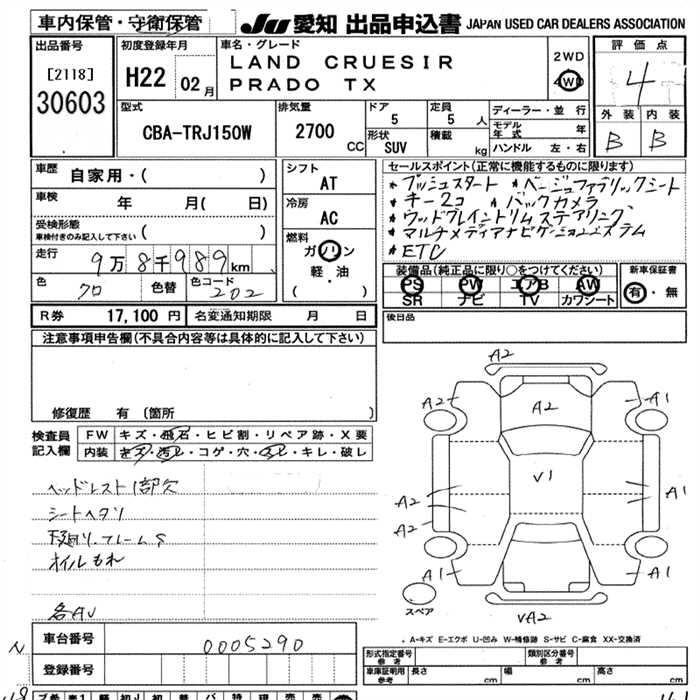 車内保管・守衛保管
JU 愛知 出品申込書 JAPAN USED CAR DEALERS ASSOCIATION
出品番号
[2118]
30603
初度登録年月
H22 02月
車名・グレード
LAND CRUESIR
PRADO TX
2WD
4WD
評価点
4
外装 内装
B B
型式
CBA-TRJ150W
排気量
2700 CC
ドア
5
定員
5 人
形状
SUV
積載
kg
ディーラー・並行
モデル年式 年
ハンドル 左・右
車歴
自家用・( )
車検
年 月( 日)
受検形態
車検付きのみ記入して下さい ( )
走行
9万8千989km
色
クロ
色替
色コード
202
シフト
AT
冷房
AC
燃料
ガソリン
軽・油
( )
セールスポイント(正常に機能するものに限ります)
* プッシュスタート * ベージュファブリックシート
* キー2コ * バックカメラ
* ウッドグレイントリムステアリング
* マルチメディアナビゲーションシステム
* ETC
装備品(純正品に限り○をつけてください)
PS PW エアB AW
SR ナビ TV カワシート
新車保証書
有・無
R券 17,100 円
名変通知期限 月 日
後日品
注意事項申告欄(不具合内容等は具体的に記入して下さい)
修復歴 有 (箇所 )
検査員
記入欄
FW キズ・飛石・ヒビ割・リペア跡・X要
内装 キズ・汚レ・コゲ・穴・スレ・キレ・破レ
ヘッドレスト1部欠
シートヘタリ
下廻リ・フレームS
オイルもれ
各AU
A2
A2
A2
A1
V1
A2
A2
A2
A1
A1
VA2
スペア
A-キズ E-エクボ U-凹み W-補修跡 S-サビ C-腐食 XX-交換済
車台番号
0005290
登録番号
形式指定番号
参考
類別区分番号
参考
車庫証明用
参考
長さ cm 幅 cm 高さ cm
N